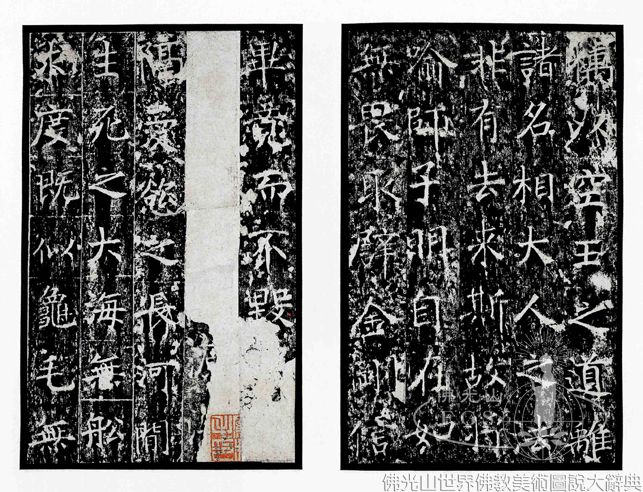 竊以空王之道離
諸名相大人之法
非有去來斯故將
喻師子明自在如
無畏取譬金剛信
畢竟而不毀
隔愛慾之長河間
生死之大海無船
求度既似龜毛無
佛光山
佛光山世界佛教美術圖說大辭典